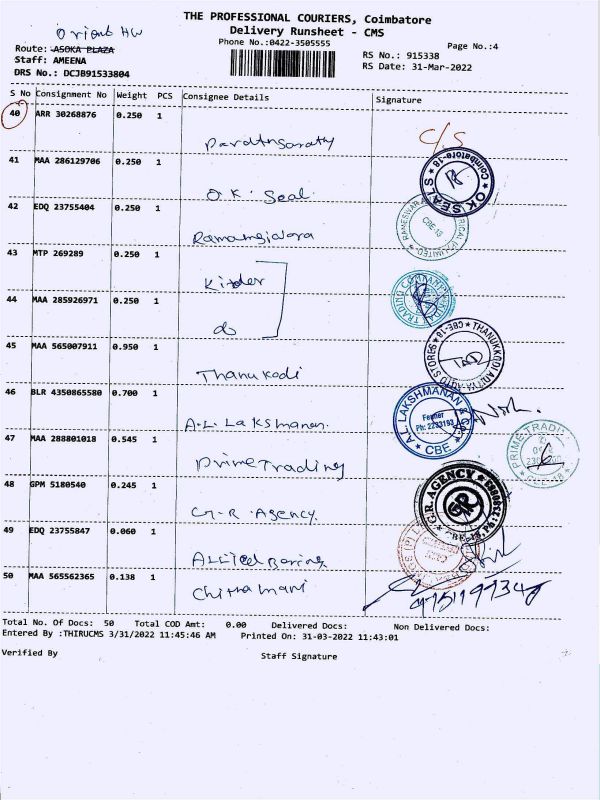 THE PROFESSIONAL COURIERS, Coimbatore
Delivery Runsheet - CMS
Phone No.:0422-3505555
Page No.:4
Orient HW
Route: ASOKA PLAZA
Staff: AMEENA
DRS No.: DCJB91533804
RS No.: 915338
RS Date: 31-Mar-2022
S No Consignment No Weight PCS Consignee Details Signature
40 ARR 30268876 0.250 1
C/S
41 MAA 286129706 0.250 1
O.K. Seal
OK SEALS Coimbatore-18
42 EDQ 23755404 0.250 1
CBE-18
43 MTP 269289 0.250 1
44 MAA 285926971 0.250 1
do
TRADING COMPANY
45 MAA 565007911 0.950 1
Thanukodi
THANUKKODI ADITYA AUTO STORES CBE-18
46 BLR 4350865580 0.700 1
A.L. Lakshmanan.
A.L. LAKSHMANAN
CBE
47 MAA 288801018 0.545 1
Prime Trading
PRIME TRADING
CBE-18
48 GPM 5180540 0.245 1
G.R. Agency.
G.R. AGENCY
GR
49 EDQ 23755847 0.060 1
Allied Bearing
50 MAA 565562365 0.138 1
Chithamani
Total No. Of Docs: 50 Total COD Amt: 0.00 Delivered Docs: Non Delivered Docs:
Entered By :THIRUCMS 3/31/2022 11:45:46 AM Printed On: 31-03-2022 11:43:01
Verified By Staff Signature